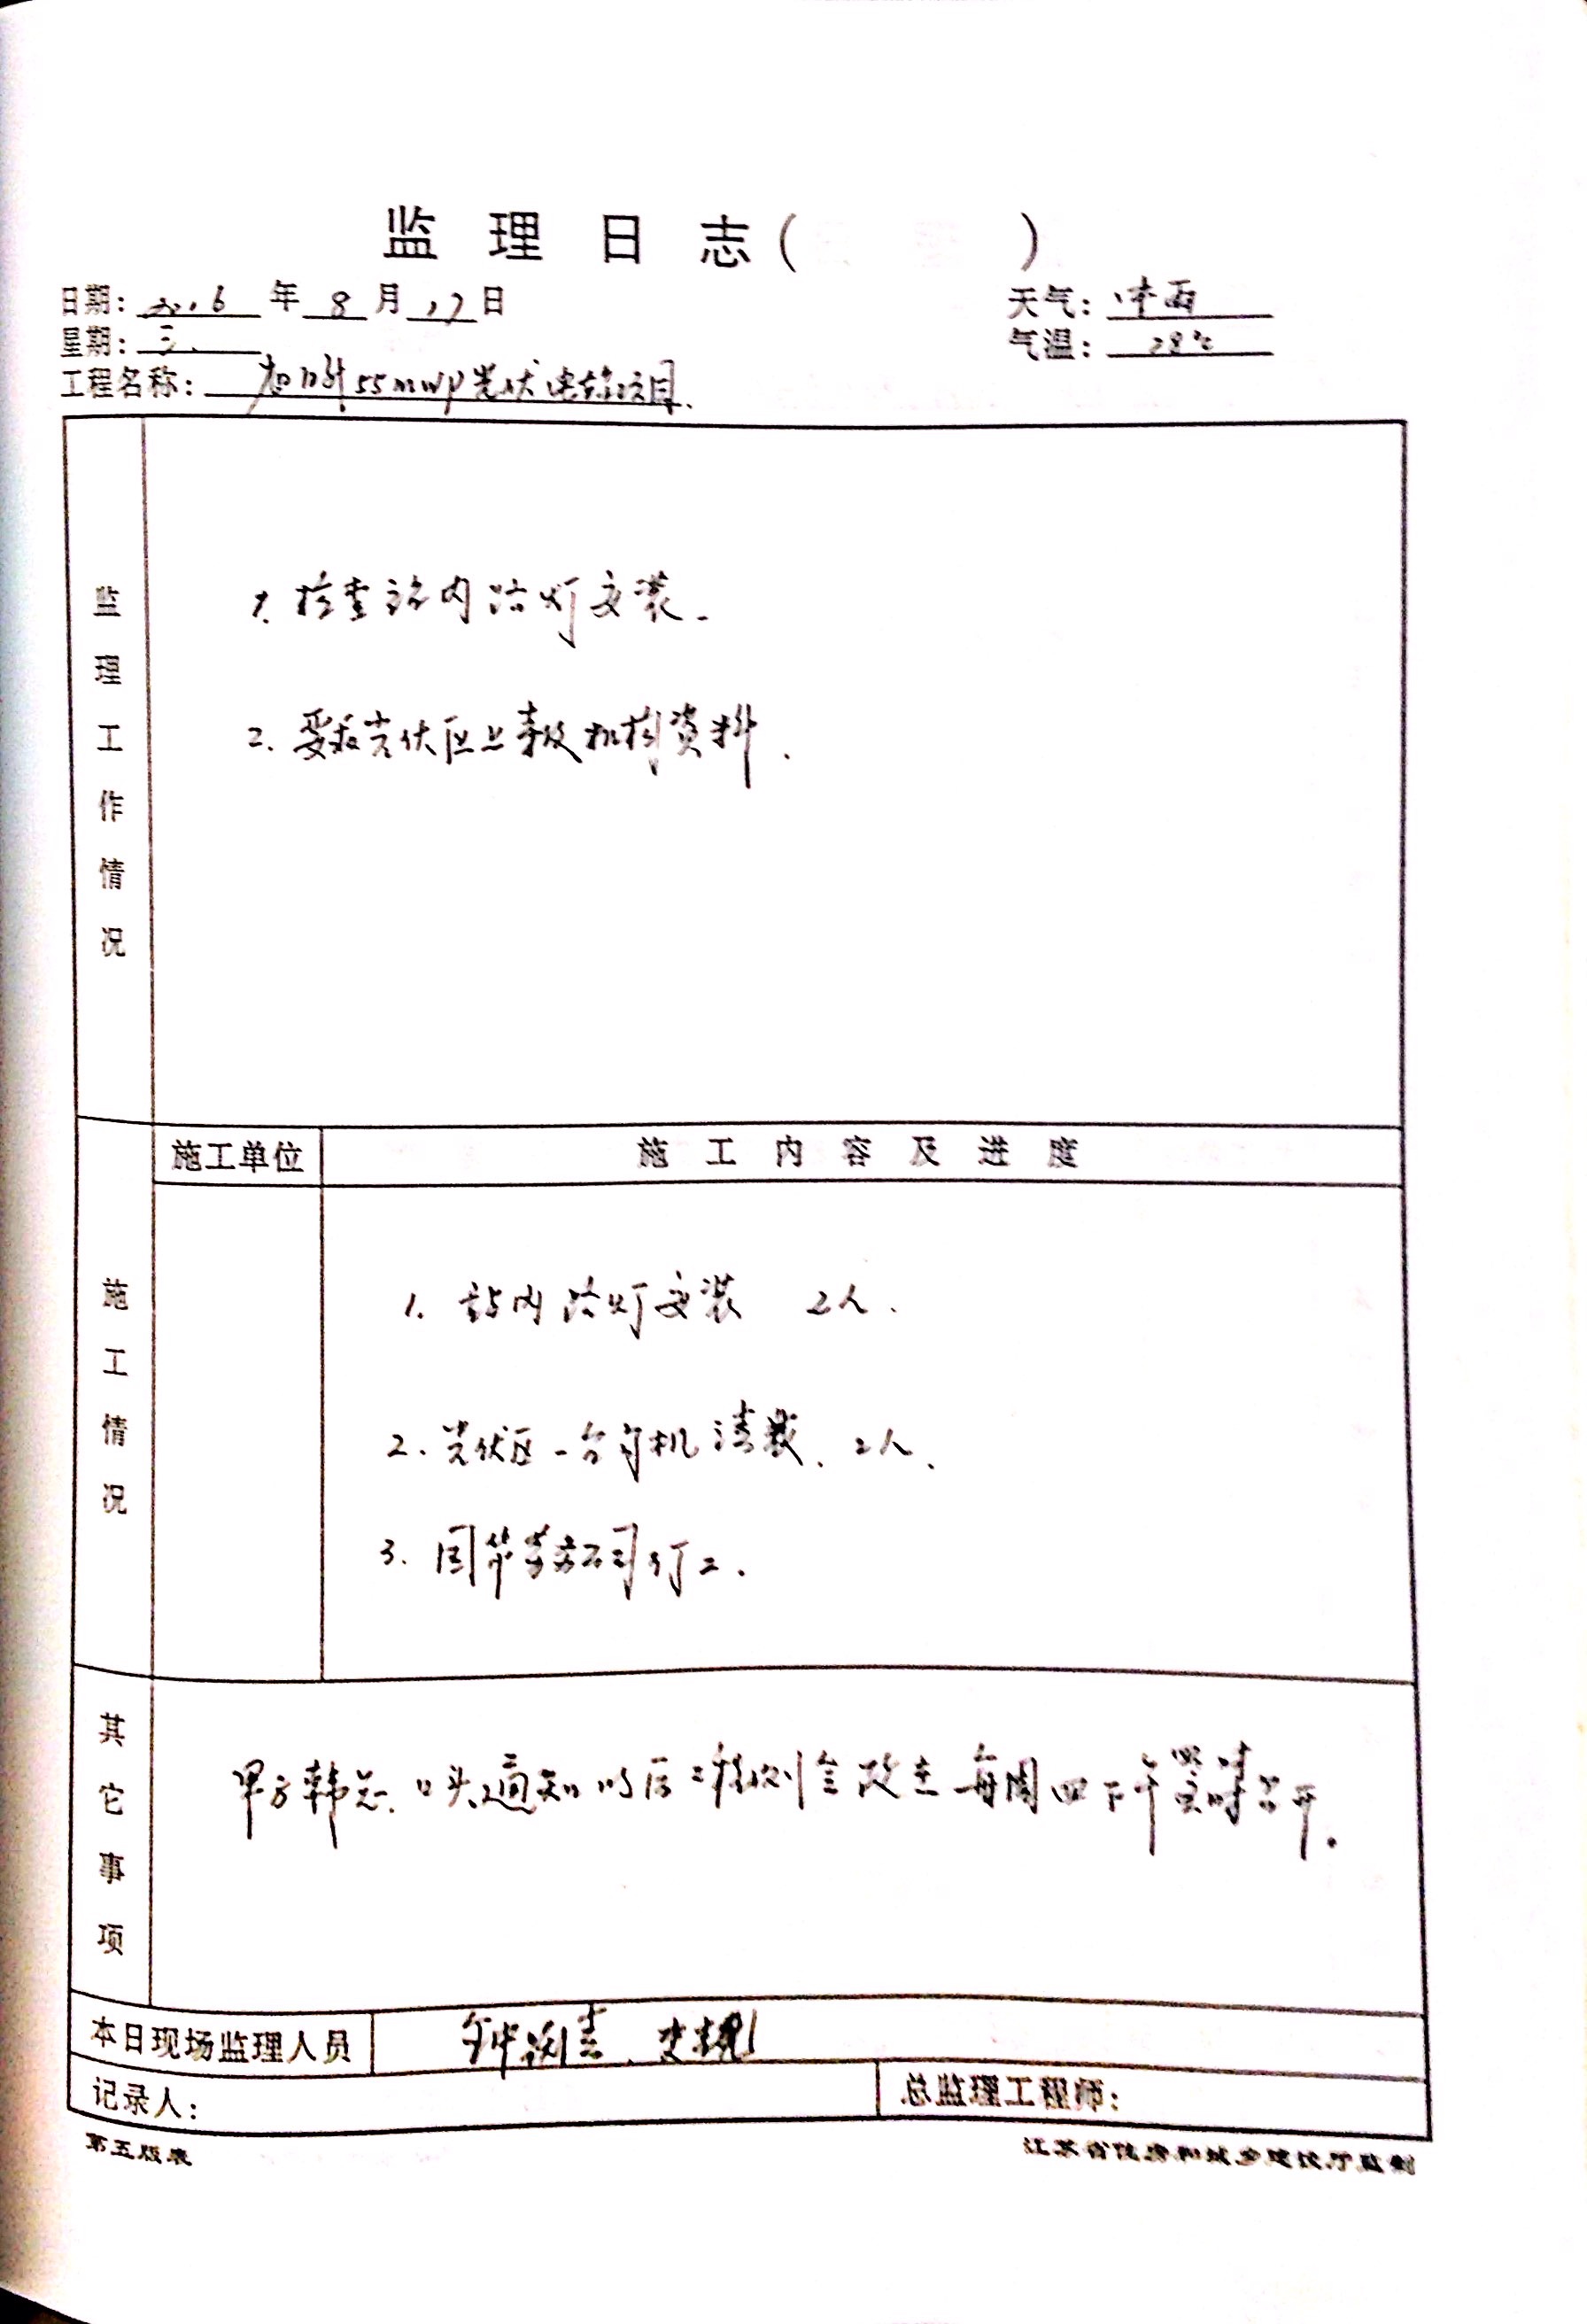 监理日志( )
日期: 2016 年 8 月 17 日
天气: 中雨
星期: 三.
气温: 28℃
工程名称: 55MWp光伏电站项目.
监理工作情况
1. 检查站内路灯安装.
2. 光伏区 资料.
施工单位
施工内容及进度
施工情况
1. 站内路灯安装 2人.
2. 光伏区一台 机 2人.
3.
其它事项
甲方韩总口头通知以后工程例会改在每周四下午 时召开.
本日现场监理人员
钟
记录人:
总监理工程师:
第五版表
江苏省住房和城乡建设厅监制